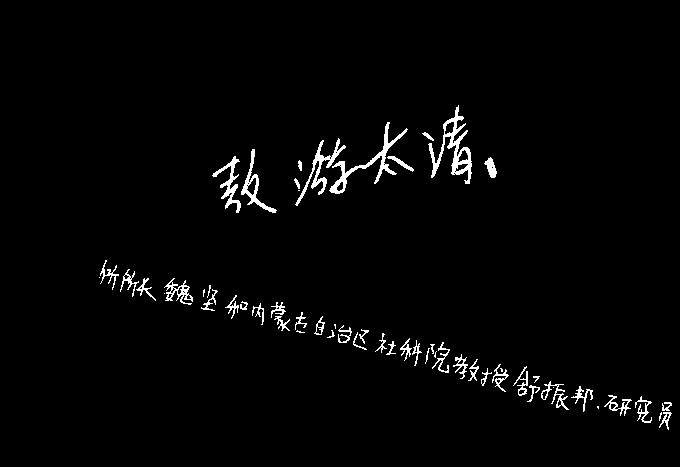 敖游太清、
所所长魏坚和内蒙古自治区社科院教授舒振邦、研究员